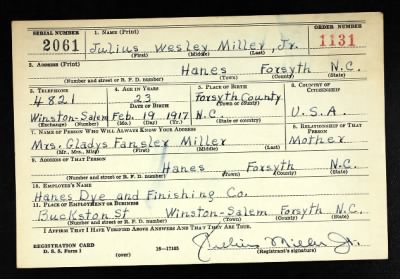 SERIAL NUMBER 1. NAME (Print) ORDER NUMBER
2061 Julius Wesley Miller, Jr. 1131
(First) (Middle) (Last)
2. ADDRESS (Print)
Hanes Forsyth N.C.
(Number and street or R. F. D. number) (Town) (County) (State)
3. TELEPHONE 4. AGE IN YEARS 5. PLACE OF BIRTH 6. COUNTRY OF CITIZENSHIP
4821 23 Forsyth County
DATE OF BIRTH (Town or county)
Winston-Salem Feb. 19 1917 N.C. U.S.A.
(Exchange) (Number) (Mo.) (Day) (Yr.) (State or country)
7. NAME OF PERSON WHO WILL ALWAYS KNOW YOUR ADDRESS 8. RELATIONSHIP OF THAT PERSON
Mrs. Gladys Fansler Miller Mother
(Mr., Mrs., Miss) (First) (Middle) (Last)
9. ADDRESS OF THAT PERSON
Hanes Forsyth N.C.
(Number and street or R. F. D. number) (Town) (County) (State)
10. EMPLOYER'S NAME
Hanes Dye and Finishing Co.
11. PLACE OF EMPLOYMENT OR BUSINESS
Buckston St Winston-Salem Forsyth N.C.
(Number and street or R. F. D. number) (Town) (County) (State)
I AFFIRM THAT I HAVE VERIFIED ABOVE ANSWERS AND THAT THEY ARE TRUE.
REGISTRATION CARD Julius Miller Jr.
D. S. S. Form 1 16-17105 (Registrant's signature)
(over)